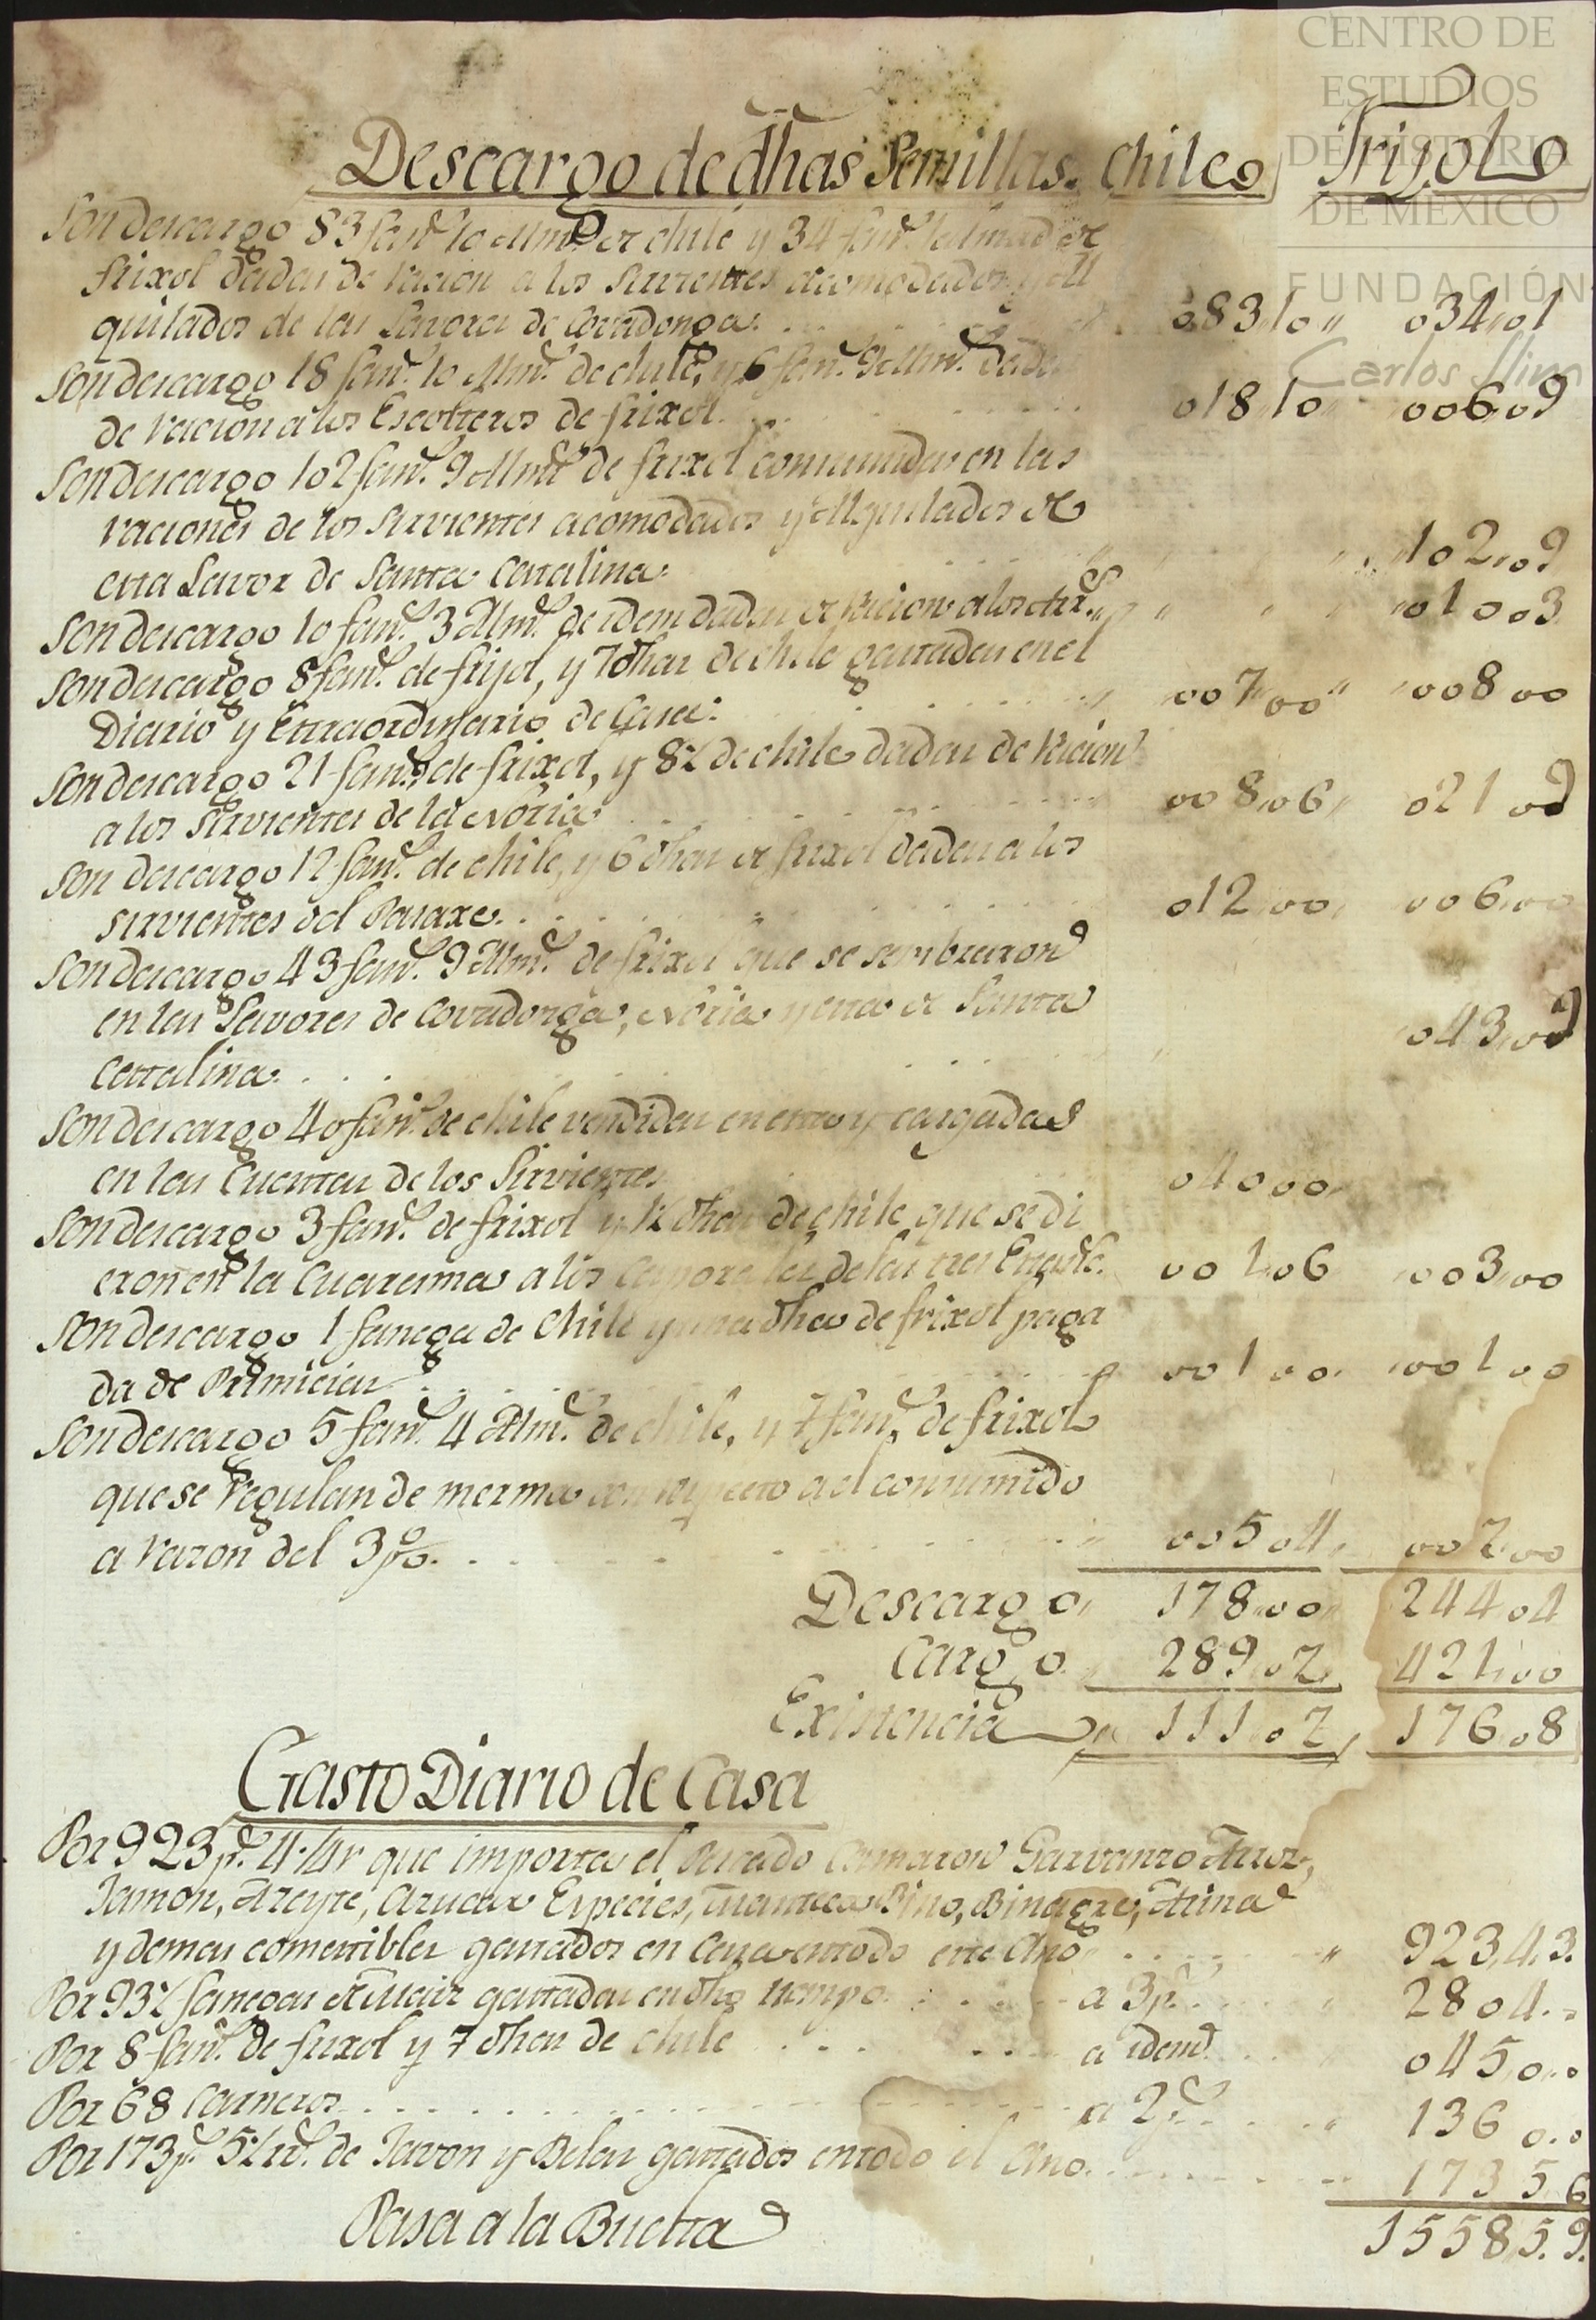 CENTRO DE
ESTUDIOS
DE HISTORIA
DE MÉXICO
FUNDACIÓN
Carlos Slim
Descargo de dhas Semillas. Chile Frijol
Son descargo 83 fan.s 10 Alm.s de chile y 34 fan.s 1 almud de
frixol dadas de racion a los sirvientes acomodados y Al
quilados de las Lavores de Covadonga. 083,,10,, 034,,01
Son descargo 18 fan.s 10 Alm.s de chile, y 6 fan.s 9 Alm.s dada
de racion a los Escolteros de frixol. 018,,10,, 006,,09
Son descargo 102 fan.s 9 Alm.s de frixol consumidas en las
raciones de los sirvientes acomodados y Alquilados de
esta Lavor de Santa Catalina. ,,102,,09
Son descargo 10 fan.s 3 Alm.s de idem dadas de racion a los ,,010,,03
Son descargo 8 fan.s de frijol, y 7 dhas de chile gastadas en el
Diario y Extraordinario de Casa: 007,,00,, ,,008,,00
Son descargo 21 fan.s de frixol, y 8½ de chile dadas de Racion
a los Sirvientes de la Noria. 008,,06,, 021,,09
Son descargo 12 fan.s de chile, y 6 dhas de frixol dadas a los
sirvientes del Pasaxe. 012,,00,, 006,,00
Son descargo 43 fan.s 9 Alm.s de frixol que se sembraron
en las Lavores de Covadonga, Noria y esta de Santa
Catalina. 043,,09
Son descargo 40 fan.s de chile vendidas en esta y cargadas
en las Cuentas de los Sirvientes 040,,00,,
Son descargo 3 fan.s de frixol y 1½ dhas de chile que se di
eron en la Cuaresma a los Caporales de las tres 001,,06 ,,003,,00
Son descargo 1 fanega de Chile y una dha de frixol paga
da de Primicias 001,,00,, ,,001,,00
Son descargo 5 fan.s 4 Alm.s de chile, y 7 fan.s de frixol
que se regulan de merma con respecto al consumido
a razon del 3 p%. 005,,04,, 007,,00
Descargo,, 178,,00,, 244,,04
Cargo. 289,,07,, 421,,00
Existencia 111,,07,, 176,,08
Gasto Diario de Casa
Por 923 p.s 4¼ r que importa el Pescado Camaron Garvanzo Arroz,
Jamon, Azeyte, Azucar Especies, Manteca Bino, Binagre, Arina
y demas comestibles gastados en Casa en todo este Año. 923,,4,,3.
Por 93½ fanegas de Maiz gastadas en dho tiempo. a 3 p.s 280 4..
Por 8 fan.s de frixol y 7 dhas de chile a idem. 045,,0..
Por 68 Carneros a 2 p.s 136 0..
Por 173 p.s 5½ r.s de Javon y Belas gastados en todo el Año. 173 5 6
Pasa a la Buelta 1558,,5.9.